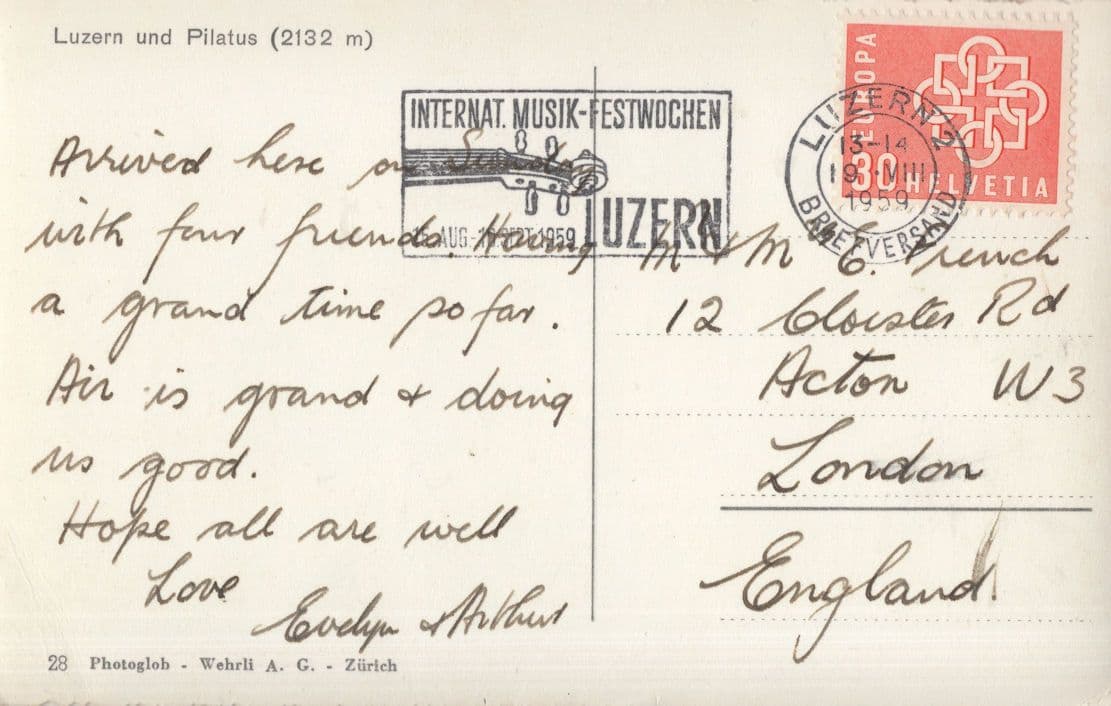 Luzern und Pilatus (2132 m)
EUROPA
30 HELVETIA
LUZERN 2
13-14
19.VIII
1959
BRIEFVERSAND
INTERNAT. MUSIK-FESTWOCHEN
15. AUG.- SEPT. 1959 LUZERN
Arrived here on Sunday
with four friends. Having
a grand time so far.
Air is grand & doing
us good.
Hope all are well
Love
Evelyn & Arthur
M & M E. French
12 Cloister Rd
Acton W3
London
England
28 Photoglob - Wehrli A. G. - Zürich